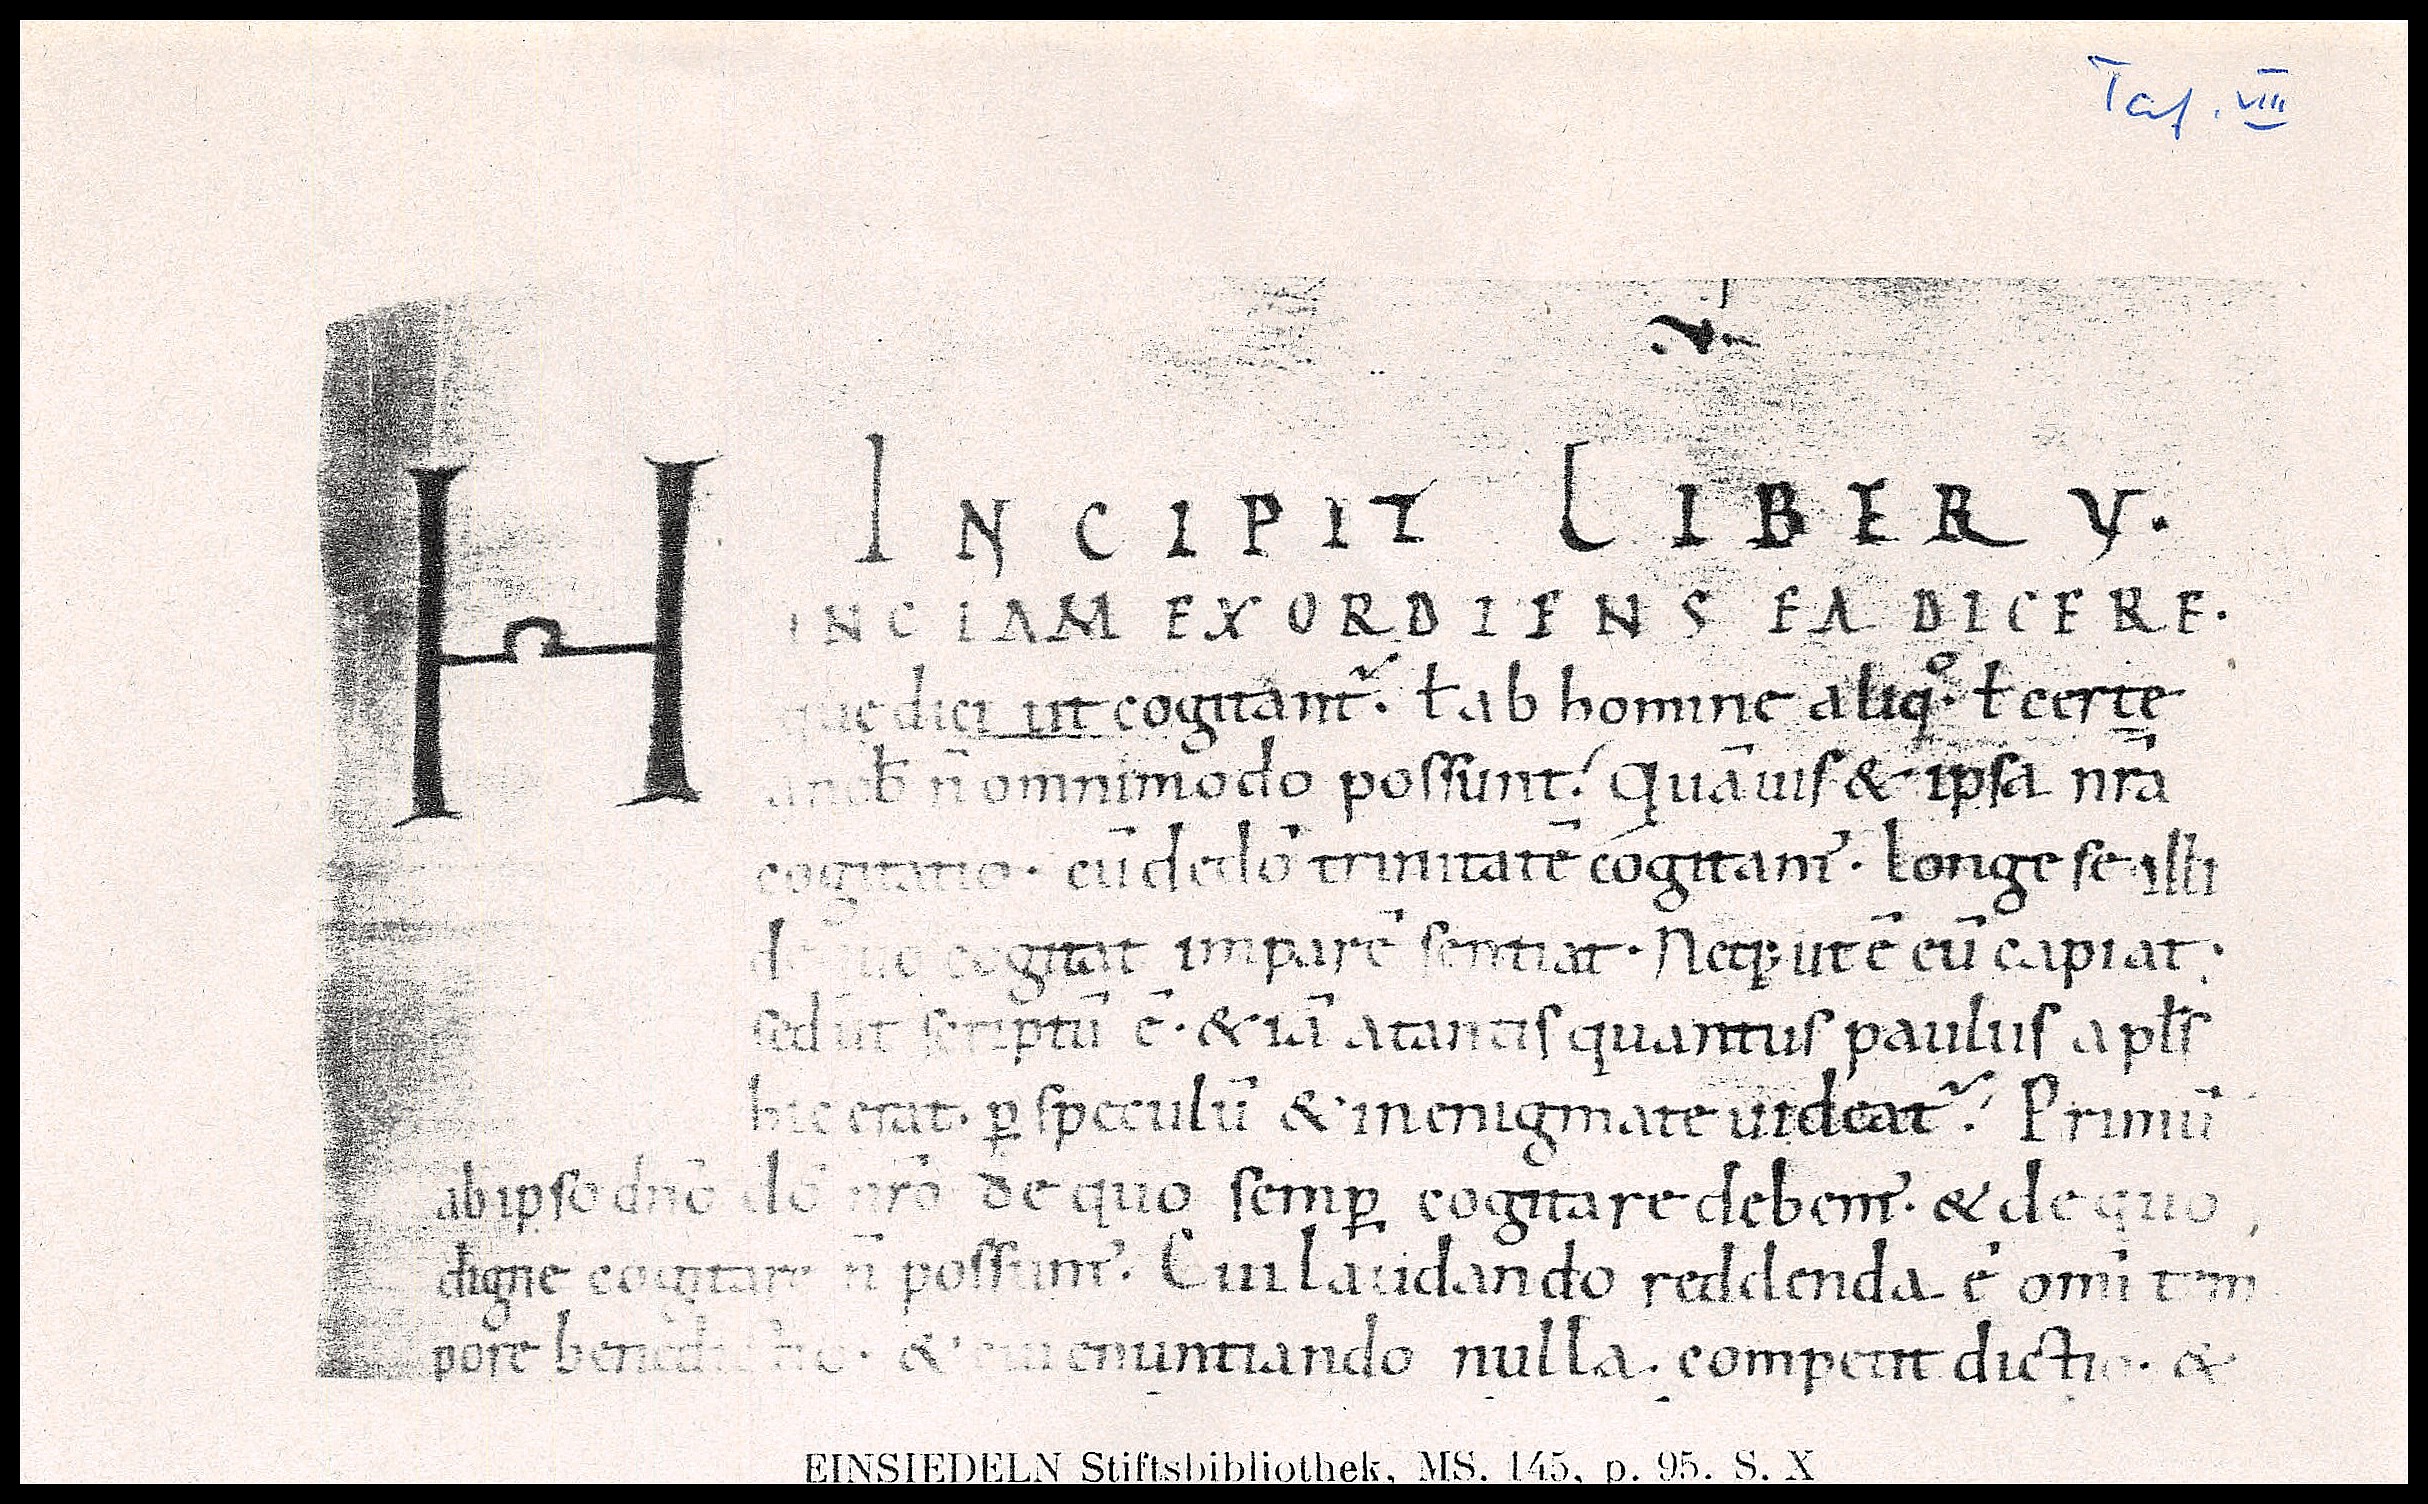 Taf. VIII
INCIPIT LIBER V.
HINC IAM EXORDIENS EA DICERE.
que dici ut cogitant᷑. ł ab homine aliqͦ. ł certe
anob̄ n̄ omnimodo possunt. Quāuis & ipsa nrā
cogitatio. cū dedō trinitatē cogitam᷒. longe se illi
de quo cogitat imparē sentiat. Neq; ut ē eū capiat.
sed ut scriptū ē. & iā atantis quantus paulus apłs
hic erat. ꝑ speculū & in enigmate uideat᷑. Primū
ab ipso dnō dō nrō de quo semꝑ cogitare debem᷒. & de quo
digne cogitare n̄ possum᷒. Cui laudando reddenda ē omī tem
pore benedictio. & cui enuntiando nulla competit dictio. &
EINSIEDELN Stiftsbibliothek, MS. 145, p. 95. S. X